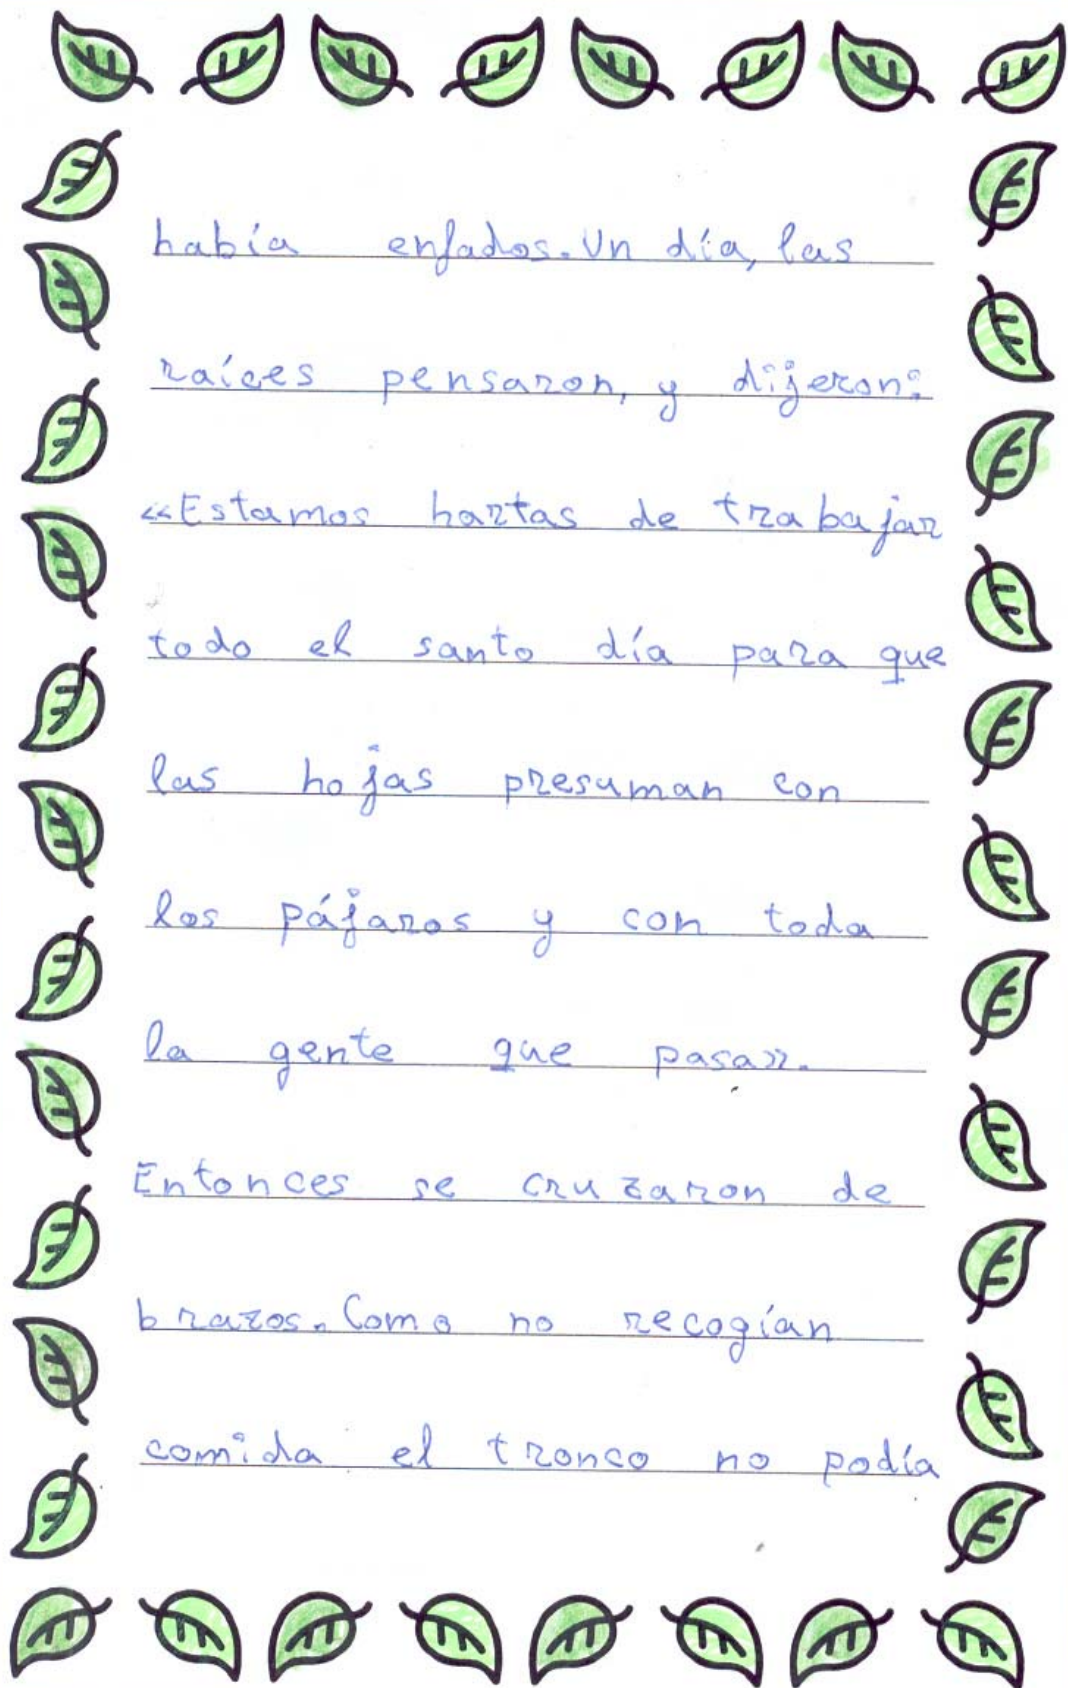 había enfados. Un día, las
raíces pensaron, y dijeron:
«Estamos hartas de trabajar
todo el santo día para que
las hojas presuman con
los pájaros y con toda
la gente que pasa».
Entonces se cruzaron de
brazos. Como no recogían
comida el tronco no podía